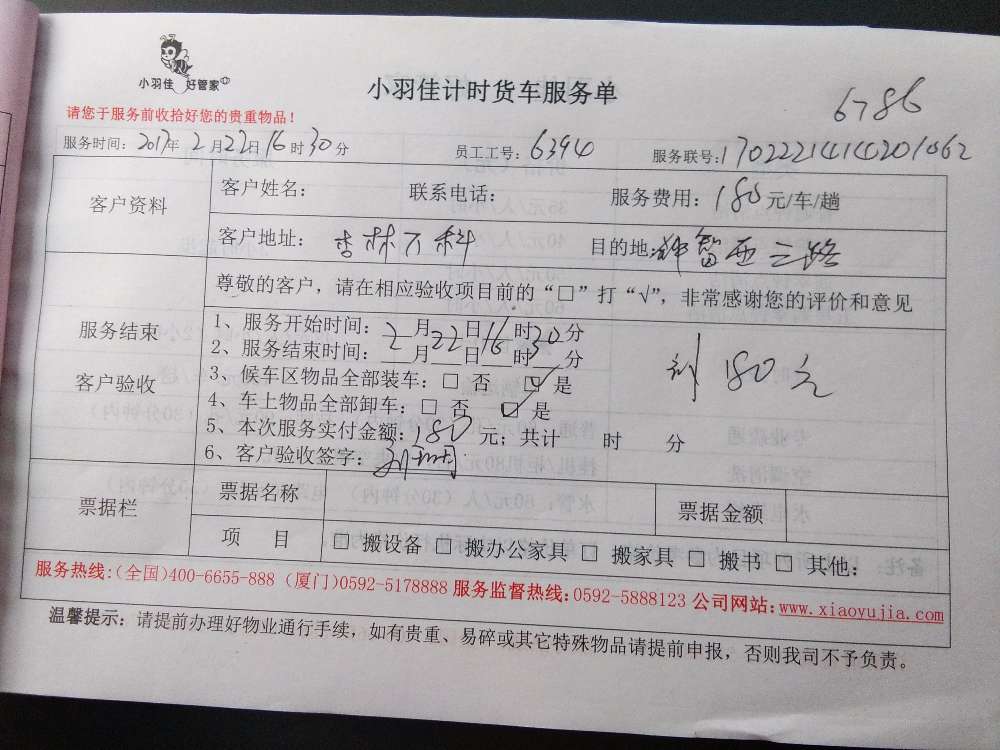 小羽佳 好管家
小羽佳计时货车服务单
6786
请您于服务前收拾好您的贵重物品！
服务时间：2017年2月22日16时30分 员工工号：6394 服务联号：17022214140201062
客户资料 客户姓名： 联系电话： 服务费用：180元/车/趟
客户地址：杏林万科 目的地：西二路
尊敬的客户，请在相应验收项目前的“□”打“√”，非常感谢您的评价和意见
服务结束
客户验收
1、服务开始时间：2月22日16时30分
2、服务结束时间：__月__日__时__分
3、候车区物品全部装车：□ 否 ☑ 是
4、车上物品全部卸车：□ 否 ☑ 是
5、本次服务实付金额：180元；共计 时 分
6、客户验收签字：
180元
票据栏 票据名称 票据金额
项 目 □ 搬设备 □ 搬办公家具 □ 搬家具 □ 搬书 □ 其他：
服务热线：(全国)400-6655-888 (厦门)0592-5178888 服务监督热线：0592-5888123 公司网站：www.xiaoyujia.com
温馨提示：请提前办理好物业通行手续，如有贵重、易碎或其它特殊物品请提前申报，否则我司不予负责。